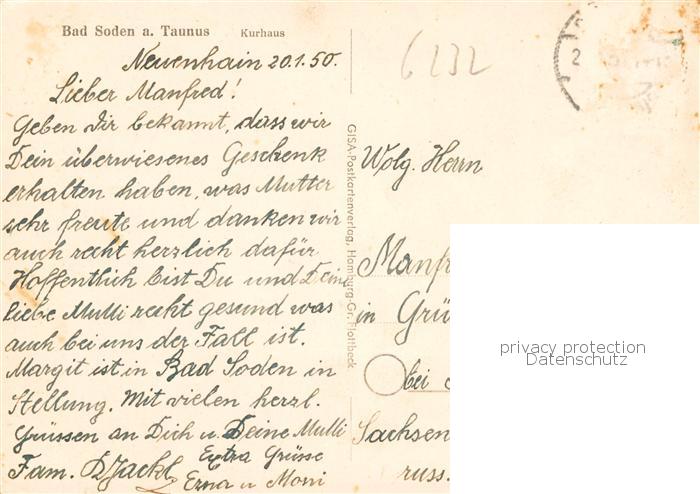 Bad Soden a. Taunus Kurhaus
Neuenhain 20.1.50.
Lieber Manfred!
Geben Dir bekannt, dass wir
Dein überwiesenes Geschenk
erhalten haben, was Mutter
sehr freute und danken wir
auch recht herzlich dafür
Hoffentlich bist Du und Deine
liebe Mutti recht gesund was
auch bei uns der Fall ist.
Margit ist in Bad Soden in
Stellung. Mit vielen herzl.
Grüssen an Dich u. Deine Mutti
Fam. Jackl
Extra Grüsse
Erna u Moni
GISA-Postkartenverlag, Hamburg-Gr. Flottbeck
6232
2
Wolg. Herrn
Manfr
in Grü
bei
Sachsen
russ.
privacy protection
Datenschutz